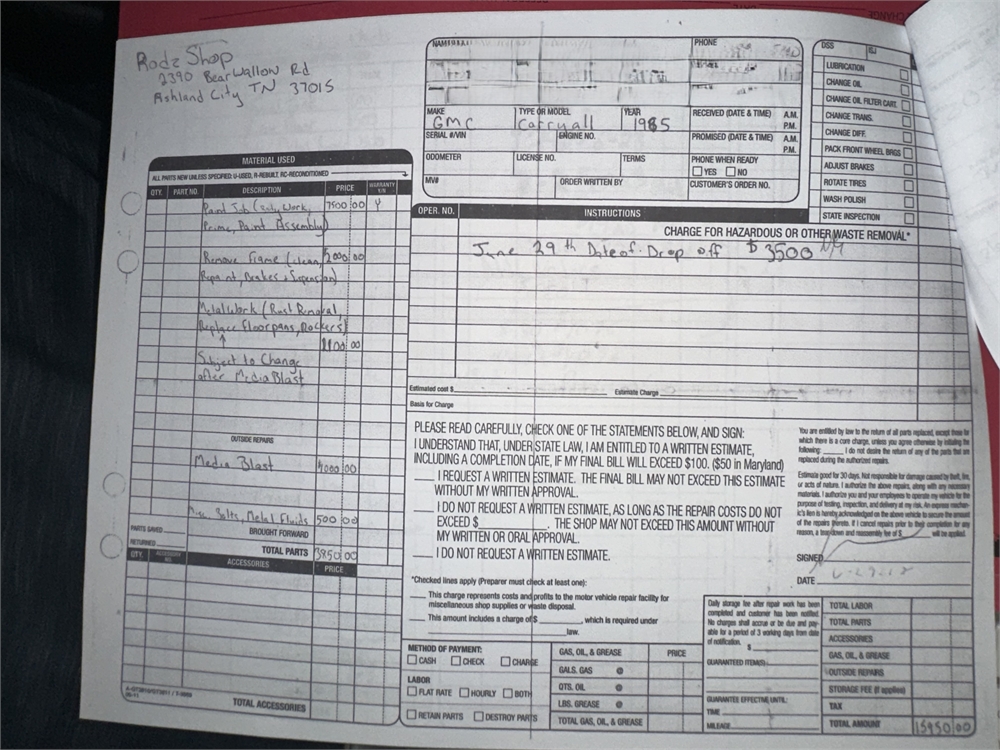 Rodz Shop
2390 Bear Wallow Rd
Ashland City TN 37015
NAME
PHONE
MAKE
GMC
TYPE OR MODEL
Carryall
YEAR
1985
RECEIVED (DATE & TIME) A.M.
P.M.
SERIAL #/VIN
ENGINE NO.
PROMISED (DATE & TIME) A.M.
P.M.
ODOMETER
LICENSE NO.
TERMS
PHONE WHEN READY
YES NO
MV#
ORDER WRITTEN BY
CUSTOMER'S ORDER NO.
DSS
LUBRICATION
CHANGE OIL
CHANGE OIL FILTER CART.
CHANGE TRANS.
CHANGE DIFF.
PACK FRONT WHEEL BRGS
ADJUST BRAKES
ROTATE TIRES
WASH POLISH
STATE INSPECTION
MATERIAL USED
ALL PARTS NEW UNLESS SPECIFIED: U-USED, R-REBUILT, RC-RECONDITIONED
QTY. PART NO. DESCRIPTION PRICE WARRANTY Y/N
Paint Job (Body Work, 7500 00 Y
Prime, Paint Assembly)
Remove Frame (clean, 2000 00
Repaint, Brakes + Supension)
Metal Work (Rust Removal,
Replace Floorpans, Rockers)
00
Subject to Change
after Media Blast
OUTSIDE REPAIRS
Media Blast 00
Bolts, Metal Fluids 500 00
PARTS SAVED
RETURNED
BROUGHT FORWARD
TOTAL PARTS 3850 00
QTY. ACCESSORY NO. ACCESSORIES PRICE
TOTAL ACCESSORIES
OPER. NO. INSTRUCTIONS
CHARGE FOR HAZARDOUS OR OTHER WASTE REMOVAL*
June 29th Date of Drop off $3500
Estimated cost $ Estimate Charge
Basis for Charge
PLEASE READ CAREFULLY, CHECK ONE OF THE STATEMENTS BELOW, AND SIGN:
I UNDERSTAND THAT, UNDER STATE LAW, I AM ENTITLED TO A WRITTEN ESTIMATE,
INCLUDING A COMPLETION DATE, IF MY FINAL BILL WILL EXCEED $100. ($50 in Maryland)
I REQUEST A WRITTEN ESTIMATE. THE FINAL BILL MAY NOT EXCEED THIS ESTIMATE
WITHOUT MY WRITTEN APPROVAL.
I DO NOT REQUEST A WRITTEN ESTIMATE, AS LONG AS THE REPAIR COSTS DO NOT
EXCEED $ . THE SHOP MAY NOT EXCEED THIS AMOUNT WITHOUT
MY WRITTEN OR ORAL APPROVAL.
I DO NOT REQUEST A WRITTEN ESTIMATE.
*Checked lines apply (Preparer must check at least one):
This charge represents costs and profits to the motor vehicle repair facility for
miscellaneous shop supplies or waste disposal.
This amount includes a charge of $ , which is required under
law.
You are entitled by law to the return of all parts replaced, except those for
which there is a core charge, unless you agree otherwise by initialing the
following: I do not desire the return of any of the parts that are
replaced during the authorized repairs.
Estimate good for 30 days. Not responsible for damage caused by theft, fire,
or acts of nature. I authorize the above repairs, along with any necessary
materials. I authorize you and your employees to operate my vehicle for the
purpose of testing, inspection, and delivery at my risk. An express mechan-
ic's lien is hereby acknowledged on the above vehicle to secure the amount
of the repairs thereto. If I cancel repairs prior to their completion for any
reason, a tear-down and reassembly fee of $ will be applied.
SIGNED
DATE
METHOD OF PAYMENT:
CASH CHECK CHARGE
LABOR
FLAT RATE HOURLY BOTH
RETAIN PARTS DESTROY PARTS
GAS, OIL, & GREASE PRICE
GALS. GAS @
QTS. OIL @
LBS. GREASE @
TOTAL GAS, OIL, & GREASE
Daily storage fee after repair work has been
completed and customer has been notified.
No charges shall accrue or be due and pay-
able for a period of 3 working days from date
of notification.
$
GUARANTEED ITEM(S):
GUARANTEE EFFECTIVE UNTIL:
TIME
MILEAGE
TOTAL LABOR
TOTAL PARTS
ACCESSORIES
GAS, OIL, & GREASE
OUTSIDE REPAIRS
STORAGE FEE (if applied)
TAX
TOTAL AMOUNT 15950 00